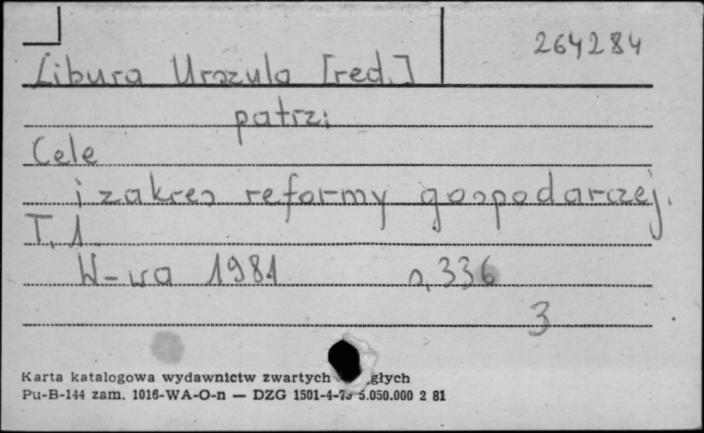 264284
Libura Urszula [red.]
patrz:
Cele
i zakres reformy gospodarczej.
T. 1
W-wa 1981 s. 336
3
Karta katalogowa wydawnictw zwartych
Pu-B-144 zam. 1016-WA-O-n — DZG 1501-4-75 5.050.000 2 81